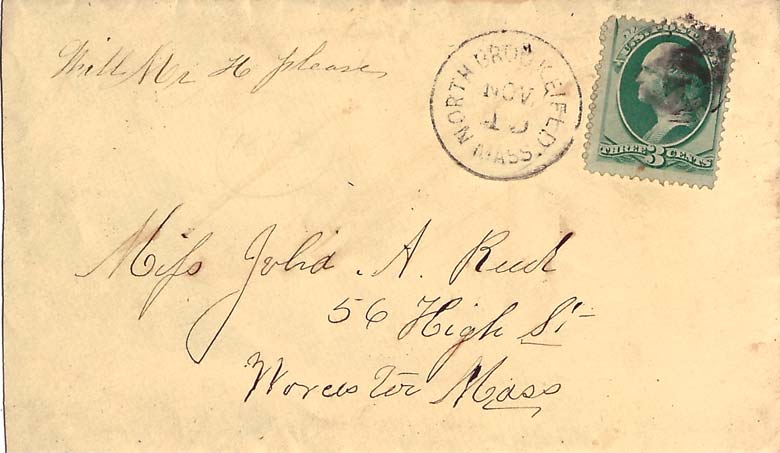 Will Mr H please
NORTH BROOKFIELD
NOV.
MASS.
THREE 3 CENTS
Miss Julia . A. Reed
56 High St
Worcester Mass